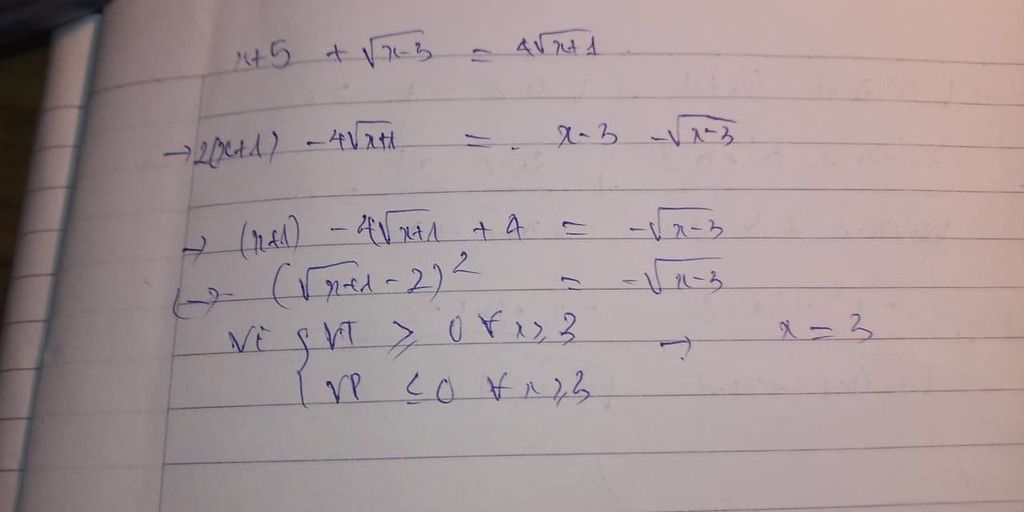 x+5 + √x-3 = 4√x+1
→ 2(x+1) - 4√x+1 = x-3 - √x-3
→ (x+1) - 4√x+1 + 4 = -√x-3
→ (√x+1 - 2)² = -√x-3
Vì { VT ≥ 0 ∀ x ≥ 3 → x = 3
VP ≤ 0 ∀ x ≥ 3